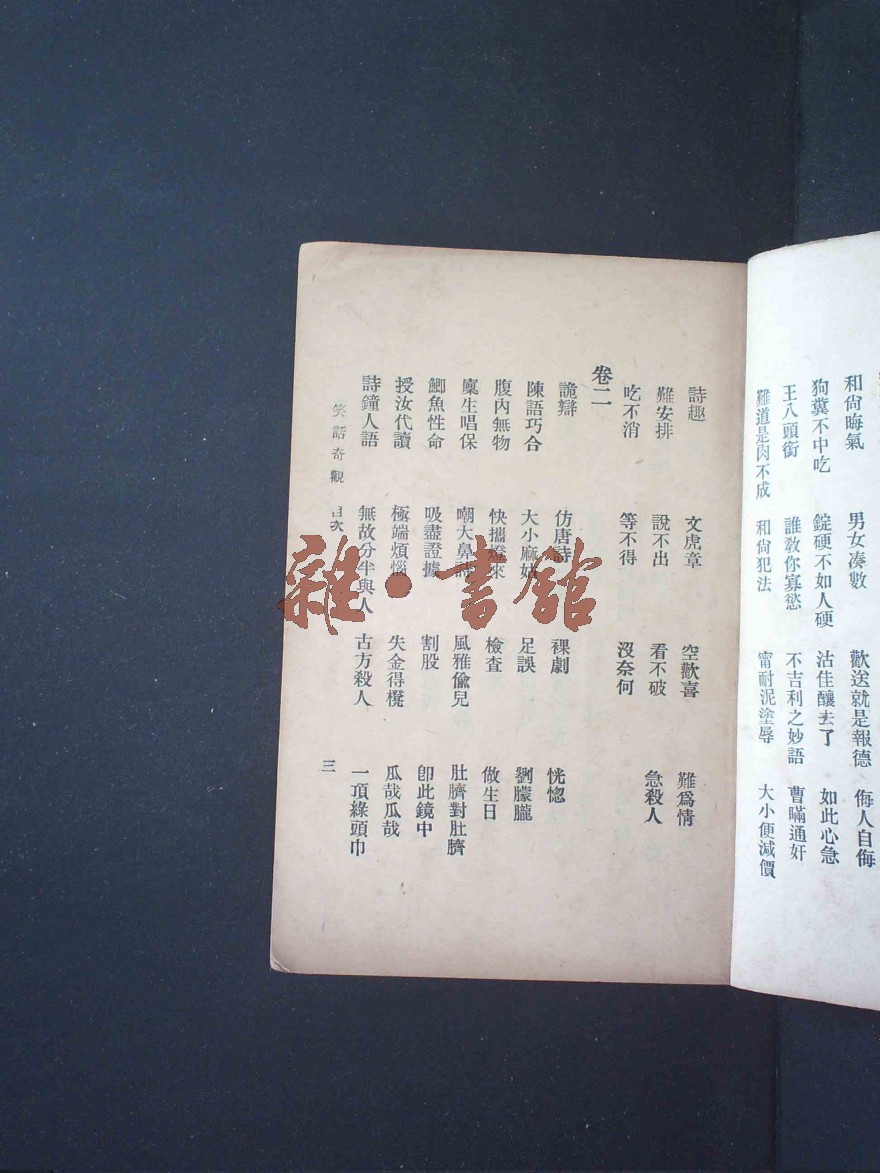 和尙晦氣　男女凑數　歡送就是報德　侮人自侮
狗糞不中吃　錠硬不如人硬　沽佳釀去了　如此心急
王八頭銜　誰敎你寡慾　不吉利之妙語　曹瞞通奸
難道是肉不成　和尙犯法　甯耐泥塗辱　大小便減價
詩趣　文虎章　空歡喜　難爲情
難安排　說不出　看不破　急殺人
吃不消　等不得　沒奈何
卷二
詭辯　仿唐詩　裸劇　恍惚
陳語巧合　大小麻姑　足誤　劉朦朧
腹內無物　快攜燈來　檢查　做生日
廩生唱保　嘲大鼻詩　風雅偸兒　肚臍對肚臍
鯽魚性命　吸盡證據　割股　卽此鏡中
授汝代讀　極端煩惱　失金得櫈　瓜哉瓜哉
詩鐘人語　無故分半與人　古方殺人　一頂綠頭巾
笑話奇觀　目次　三
雜·書館